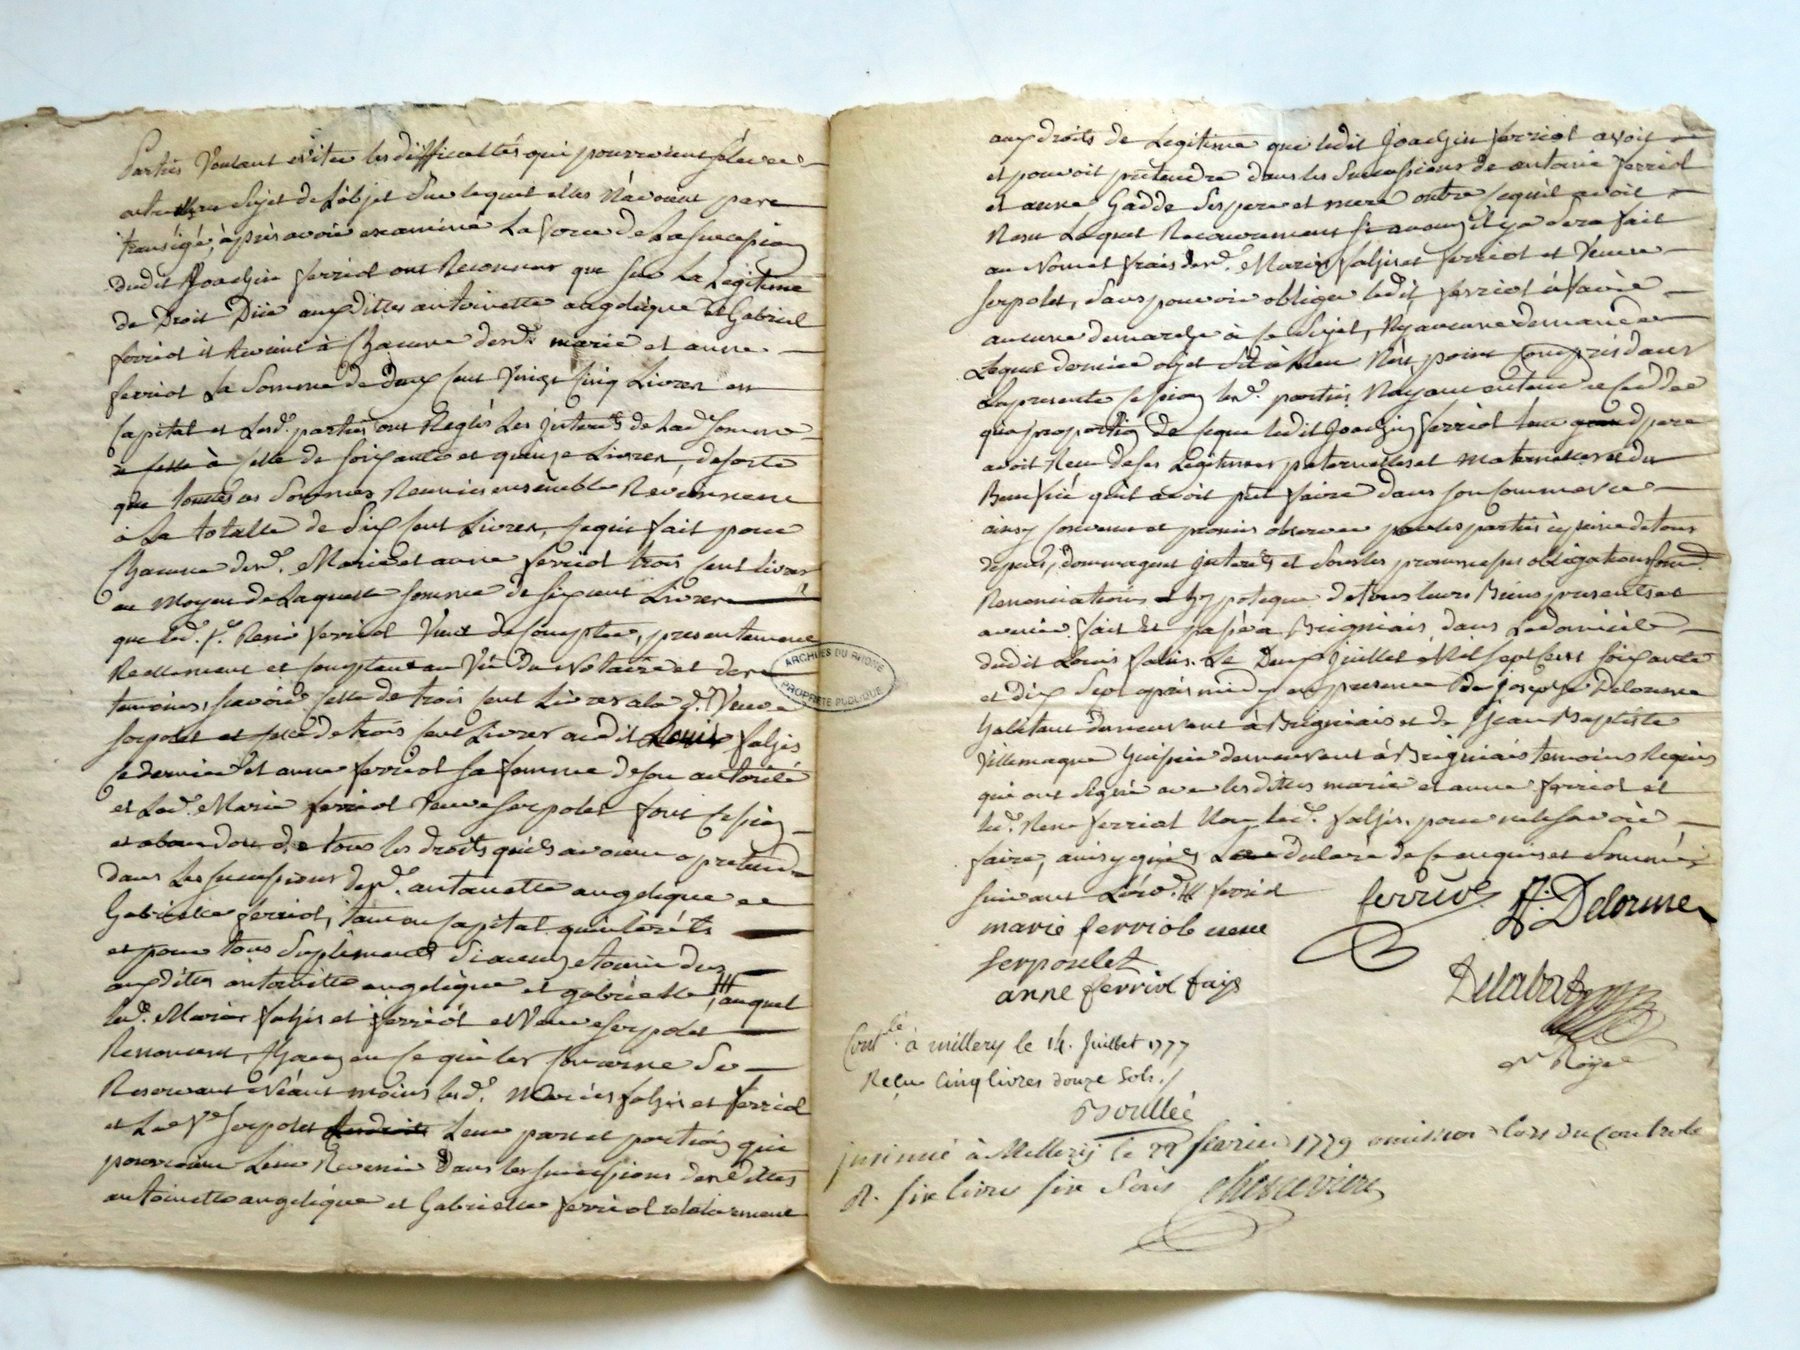 Parties Voulant eviter les difficultés qui pourroient s'elever
sujet de L'objet Sur lequel elles N'avoient pas
transigé, après avoir examiné La force de La succession
dudit Joachin ferriol ont Reconnu que sur La Legitime
de Droit Düe auxdittes antoinette angelique et Gabriel
ferriol il Revient à Chacune desd.^es marie et anne
ferriol La Somme de deux cent Vingt Cinq Livres en
Capital et Lesd. parties ont Reglés Les Interets de Lad. Somme
à celle de soixante et quinze Livres, desorte
que touttes ces Sommes Reunies ensemble Reviennent
à La totalle de Six cent Livres, ce qui fait pour
Chacune desd. Marie et anne ferriol trois cent livres
au Moyen de Laquelle somme de six cent Livres
que led. s.^r René ferriol Vient de Compter, presentement
Reellement et comptant au Vû du Notaire et des
temoins, savoir celle de trois cent Livres a la d. Veuve
serpolet et celle de trois cent Livres audit Louis faljis
ce dernier et anne ferriol sa femme de son autorité
et Lad. Marie ferriol Veuve Serpolet font Cession
et abandon de tous les droits qu'ils avoient a pretendre
dans Les successions desd. antoinette angelique et
Gabrielle ferriol, tant en Capital qu'interêts
et pour tous Suplements
auxdittes antoinette angelique et gabrielle, auquel
led. Mariés faljis et ferriol et Veuve Serpolet
Renoncent, Chacun en ce qui les Concerne Se
Reservant Néant moins lesd. Mariés faljis et ferriol
et La V.^e Serpolet Leur part et portion qui
pourroient Leur Revenir Dans les successions desdittes
antoinette angelique et Gabrielle ferriol relativement
ARCHIVES DU RHÔNE
PROPRIÉTÉ PUBLIQUE
aux droits de Legitime que ledit Joachin ferriol avoit
et pouvoit prétendre dans les Successions de antoine ferriol
et anne Gadde Ses pere et mere outre ce qu'il avoit
Reçu Lequel Recouvrement Si aucun il y a Sera fait
au Nom et frais desd. Mariés faljis et ferriol et Veuve
serpolet, Sans pouvoir obliger ledit ferriol à faire
aucune demarche à ce Sujet, Ny aucune demande
Lequel dernier objet N'est point Compris dans
La presente Cession lesd. parties N'ayant entendu ceder
qu'a proportion de ce que ledit Joachin ferriol leur grand pere
avoit Reçu de ses Legitimes paternelles et maternelles et du
Benefice qu'il avoit pût faire dans son Commerce
ainsy Convenu et promis observer par les parties à peine de tous
depens, dommages Interets et Sous les promesses obligations soud.
Renonciations hypoteque de tous leurs Biens presents et
avenir. fait et passé a Brigniais, dans Le domicile
dudit Louis faljis. Le Deux Juillet Mil Sept Cent Soixante
et dix Sept après midy en presence de Joseph Delorme
habitant demeurant à Brigniais et de Jean Baptiste
Villemagne huissier demeurant à Brigniais temoins Requis
qui ont Signé avec lesdittes marie et anne ferriol et
led. René ferriol Non led. faljis. pour ne le Savoir
faire, ainsy qu'il declaré de ce enquis et Sommé
suivant
ferriol
J. Delorme
marie ferriole veuve
serpoulet
anne ferriol fajis
Delabat
Roye
Cont.^lé à millery le 14. Juillet 1777
Reçu Cinq livres douze Sols./
Boullée
Insinué à Millery le 22 fevrier 1779 omission lors du Controle
R. six livres six Sous